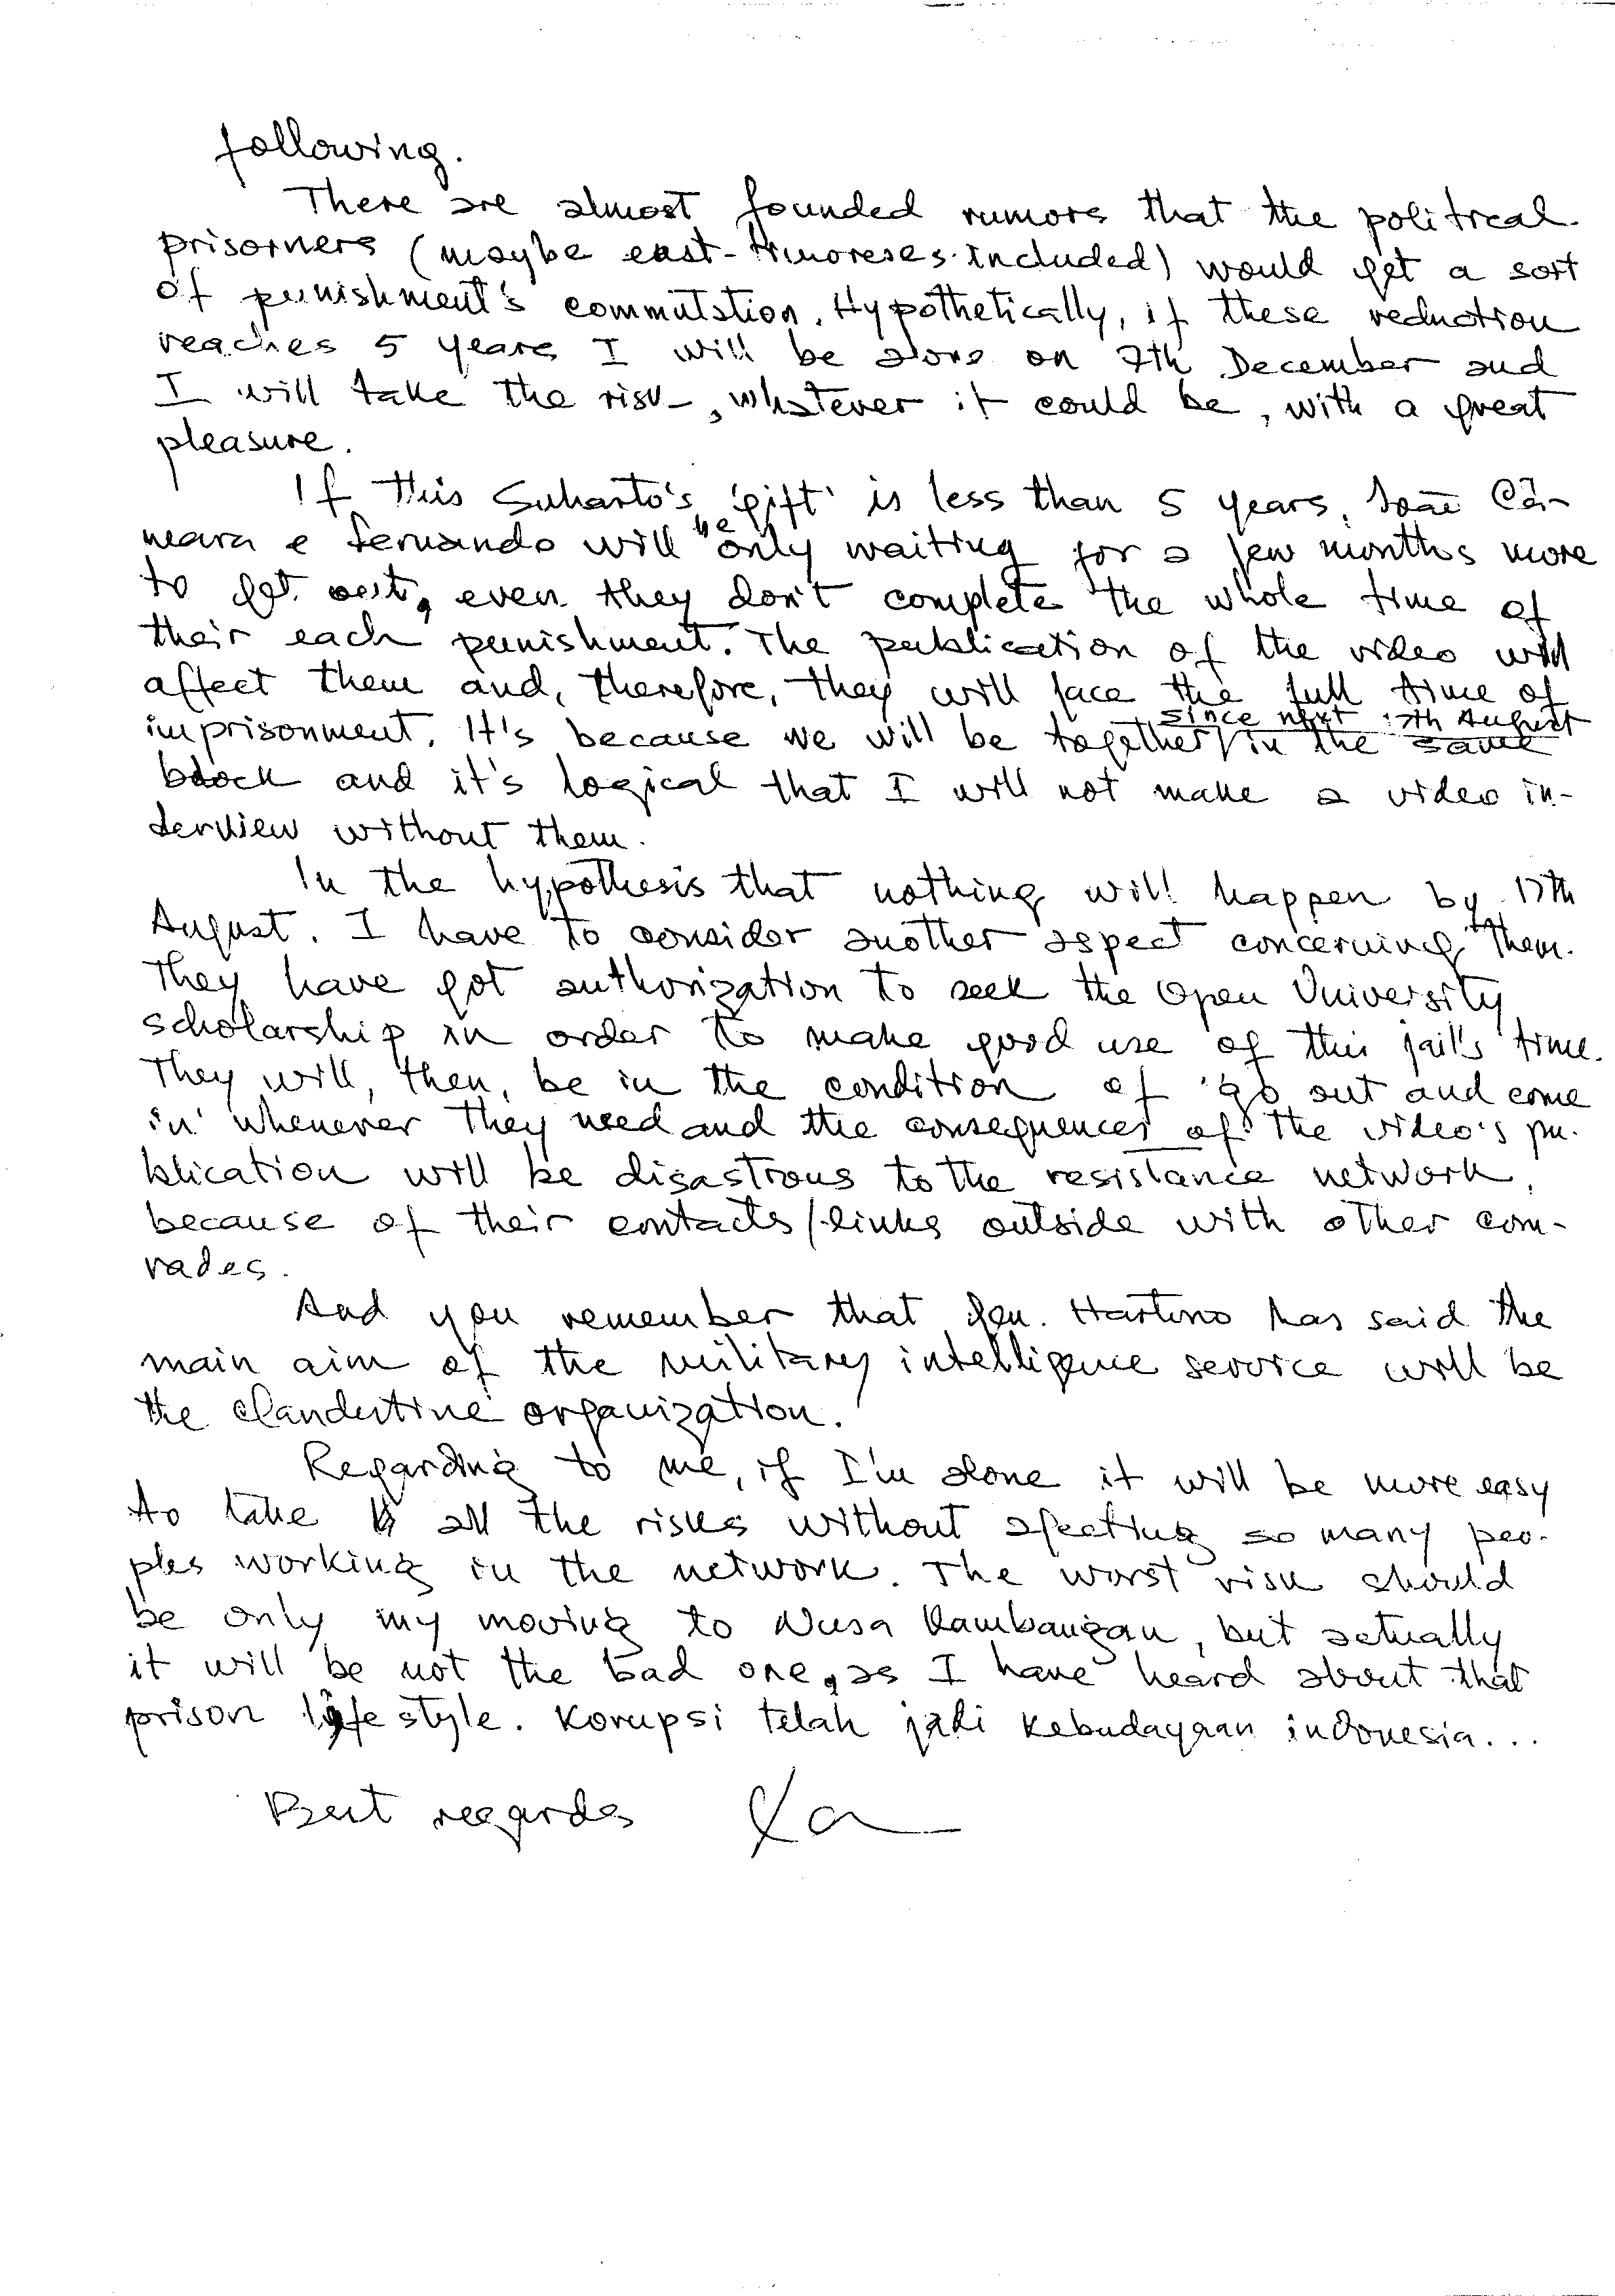 following.
There are almost founded rumors that the political
prisorners (maybe east-timoreses included) would get a sort
of punishment's commutation. Hypothetically, if these reduction
reaches 5 years I will be alone on 7th December and
I will take the risk, whatever it could be, with a great
pleasure.
If this Suharto's 'gift' is less than 5 years, João Câ-
mara e Fernando will be only waiting for a few months more
to get out, even they don't complete the whole time of
their each punishment. The publication of the video will
affect them and, therefore, they will face the full time of
since next 17th August
imprisonment. It's because we will be together/in the same
block and it's logical that I will not make a video in-
terview without them.
In the hypothesis that nothing will happen by 17th
August. I have to consider another aspect concerning to them.
They have got authorization to seek the Open University
scholarship in order to make good use of this jail's time.
They will, then, be in the condition of 'go out and come
in' whenever they need and the consequences of the video's pu-
blication will be disastrous to the resistance network,
because of their contacts/links outside with other com-
rades.
And you remember that Gen. Hartono has said the
main aim of the military intelligence service will be
the clandestine organization.
Regarding to me, if I'm alone it will be more easy
to take all the risks without afecting so many peo-
ples working in the network. The worst risk should
be only my moving to Nusa Kambangan, but actually
it will be not the bad one, as I have heard about that
prison life style. Korupsi telah jadi kebudayaan indonesia...
Best regards Xa